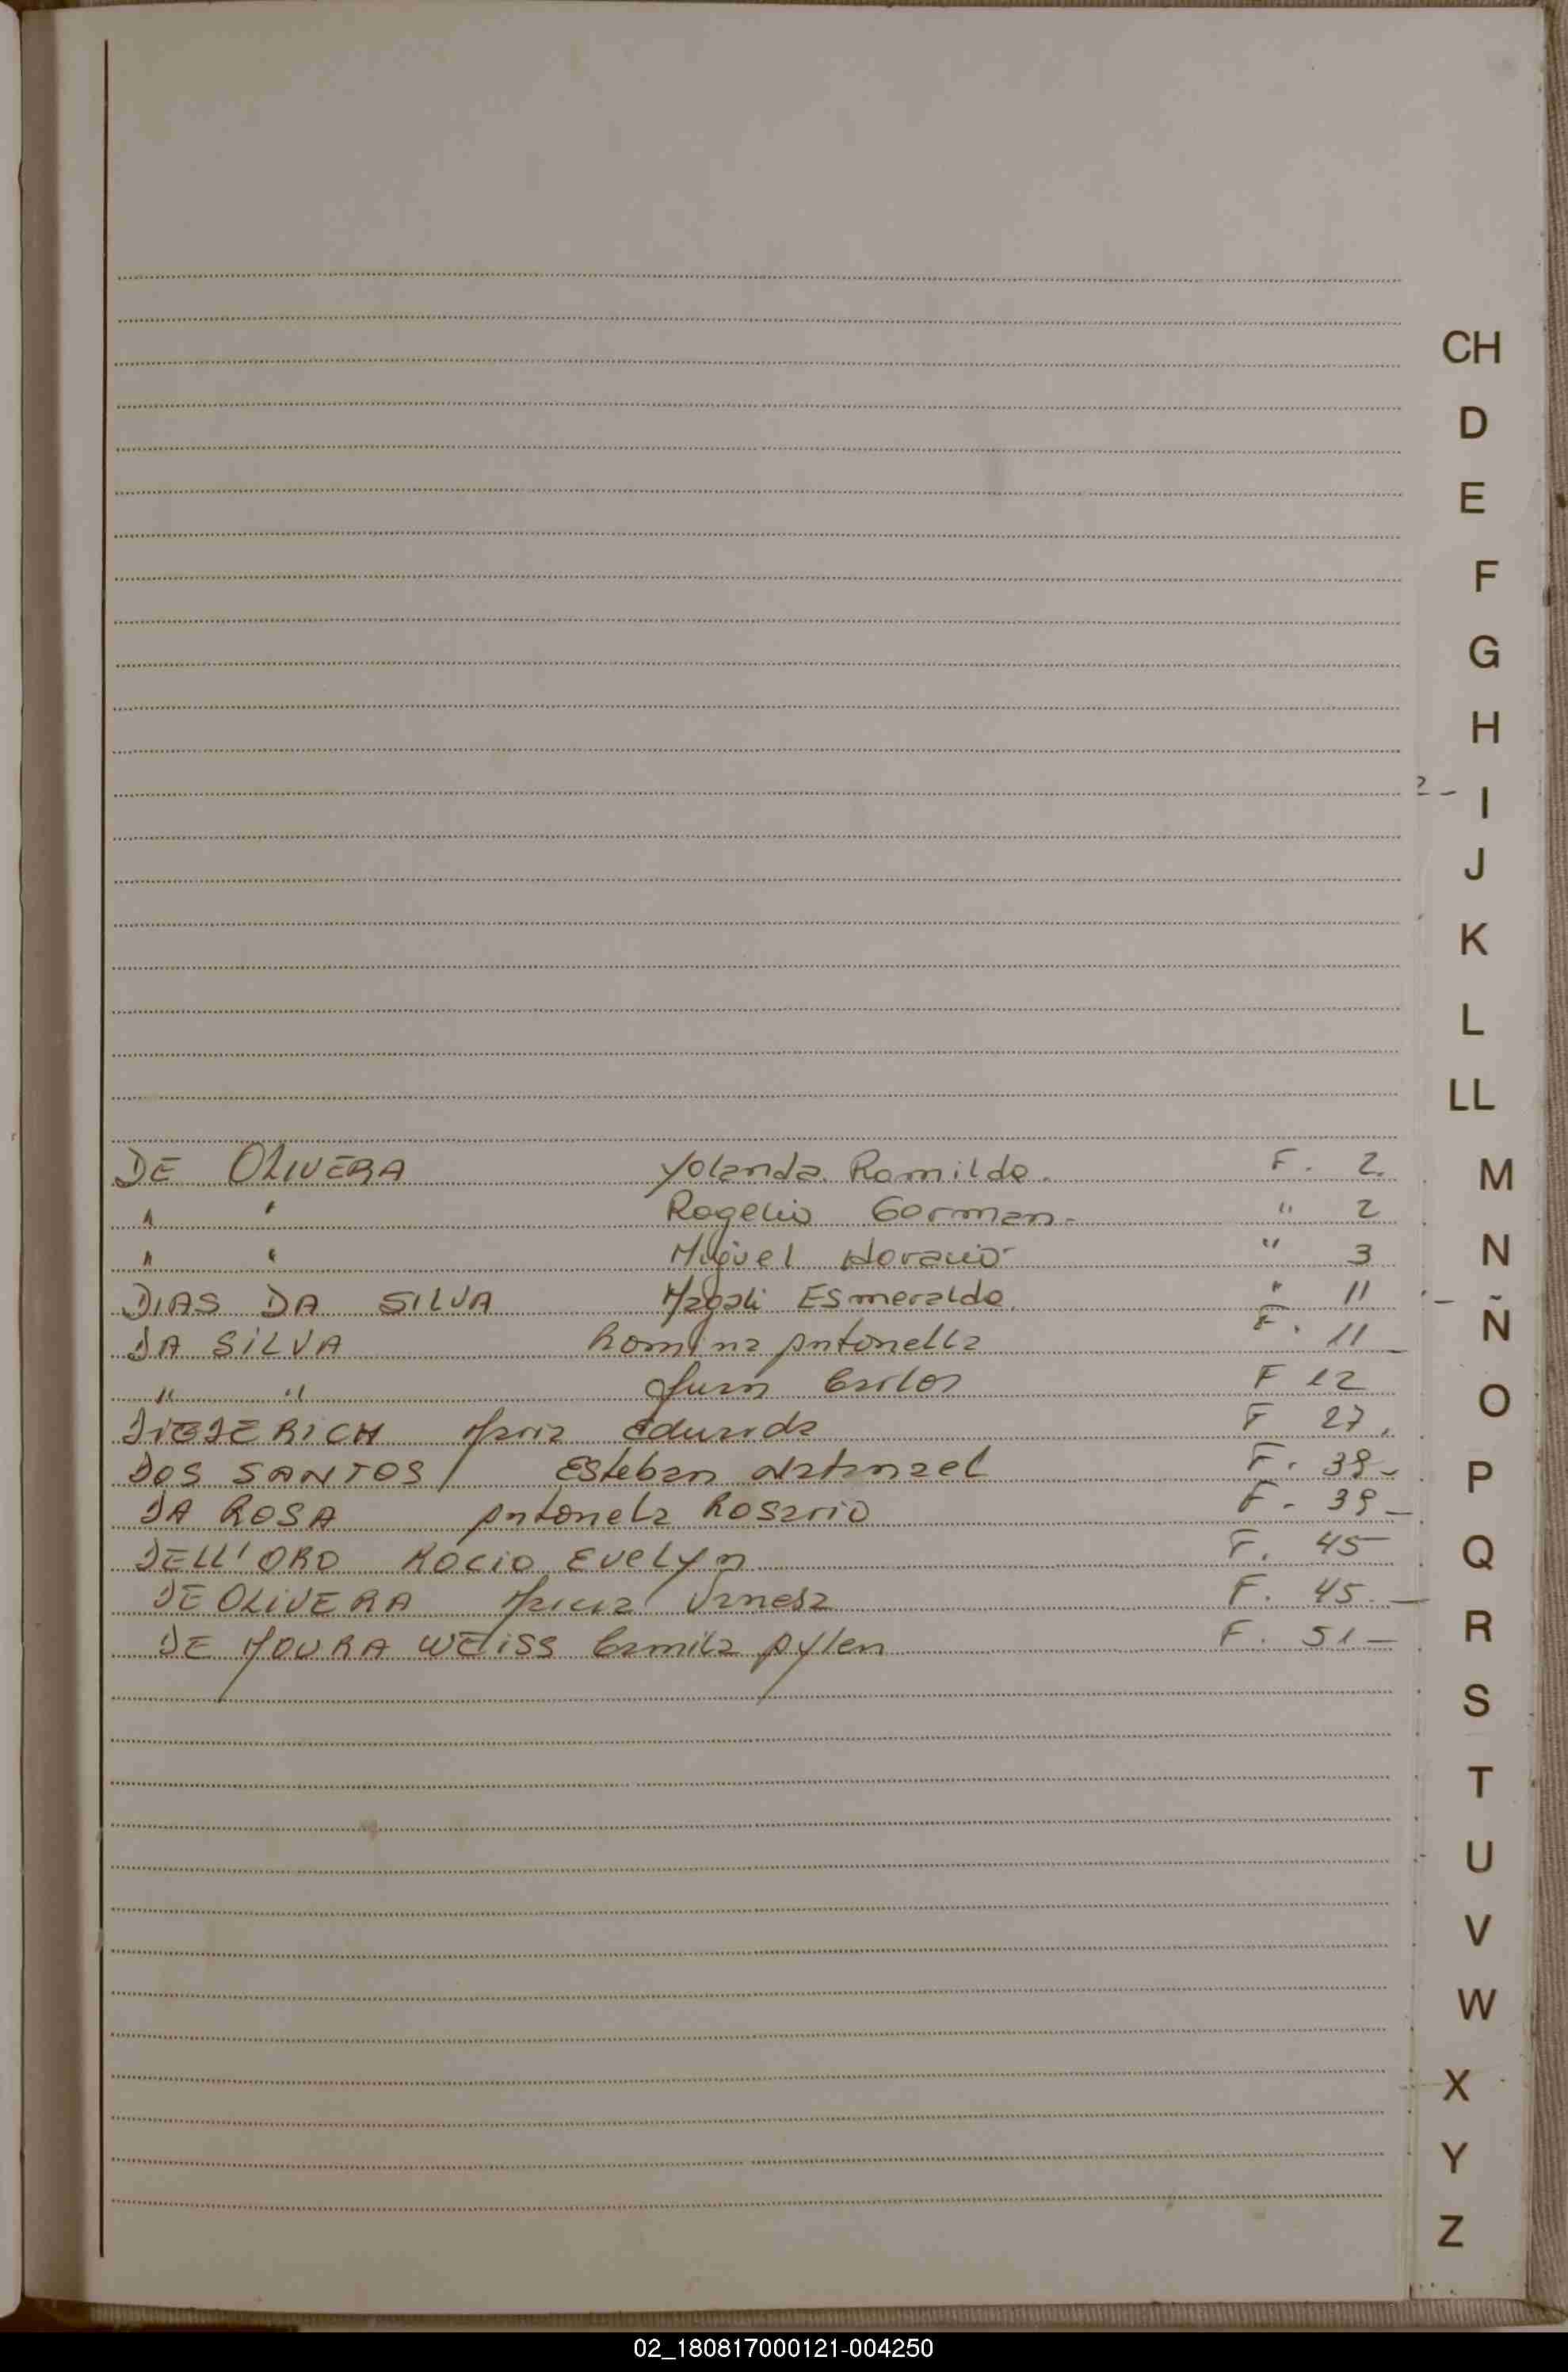 CH
D
E
F
G
H
I
J
K
L
LL
M
N
Ñ
O
P
Q
R
S
T
U
V
W
X
Y
Z
DE OLIVERA Yolanda Romilda. F. 2.
" " Rogelio German. " 2
" " Miguel Horacio " 3
DIAS DA SILVA Magali Esmeralda. " 11
DA SILVA Romina Antonella F. 11
" " Juan Carlos F 12
DIEDERICH Maria Eduarda F 27.
DOS SANTOS Esteban Natanael F. 39-
DA ROSA Antonela Rosario F. 39-
DELL'ORO Rocio Evelyn F. 45
DE OLIVERA Maria Vanesa F. 45.-
DE MOURA WEISS Camila Aylen F. 51-
02_180817000121-004250